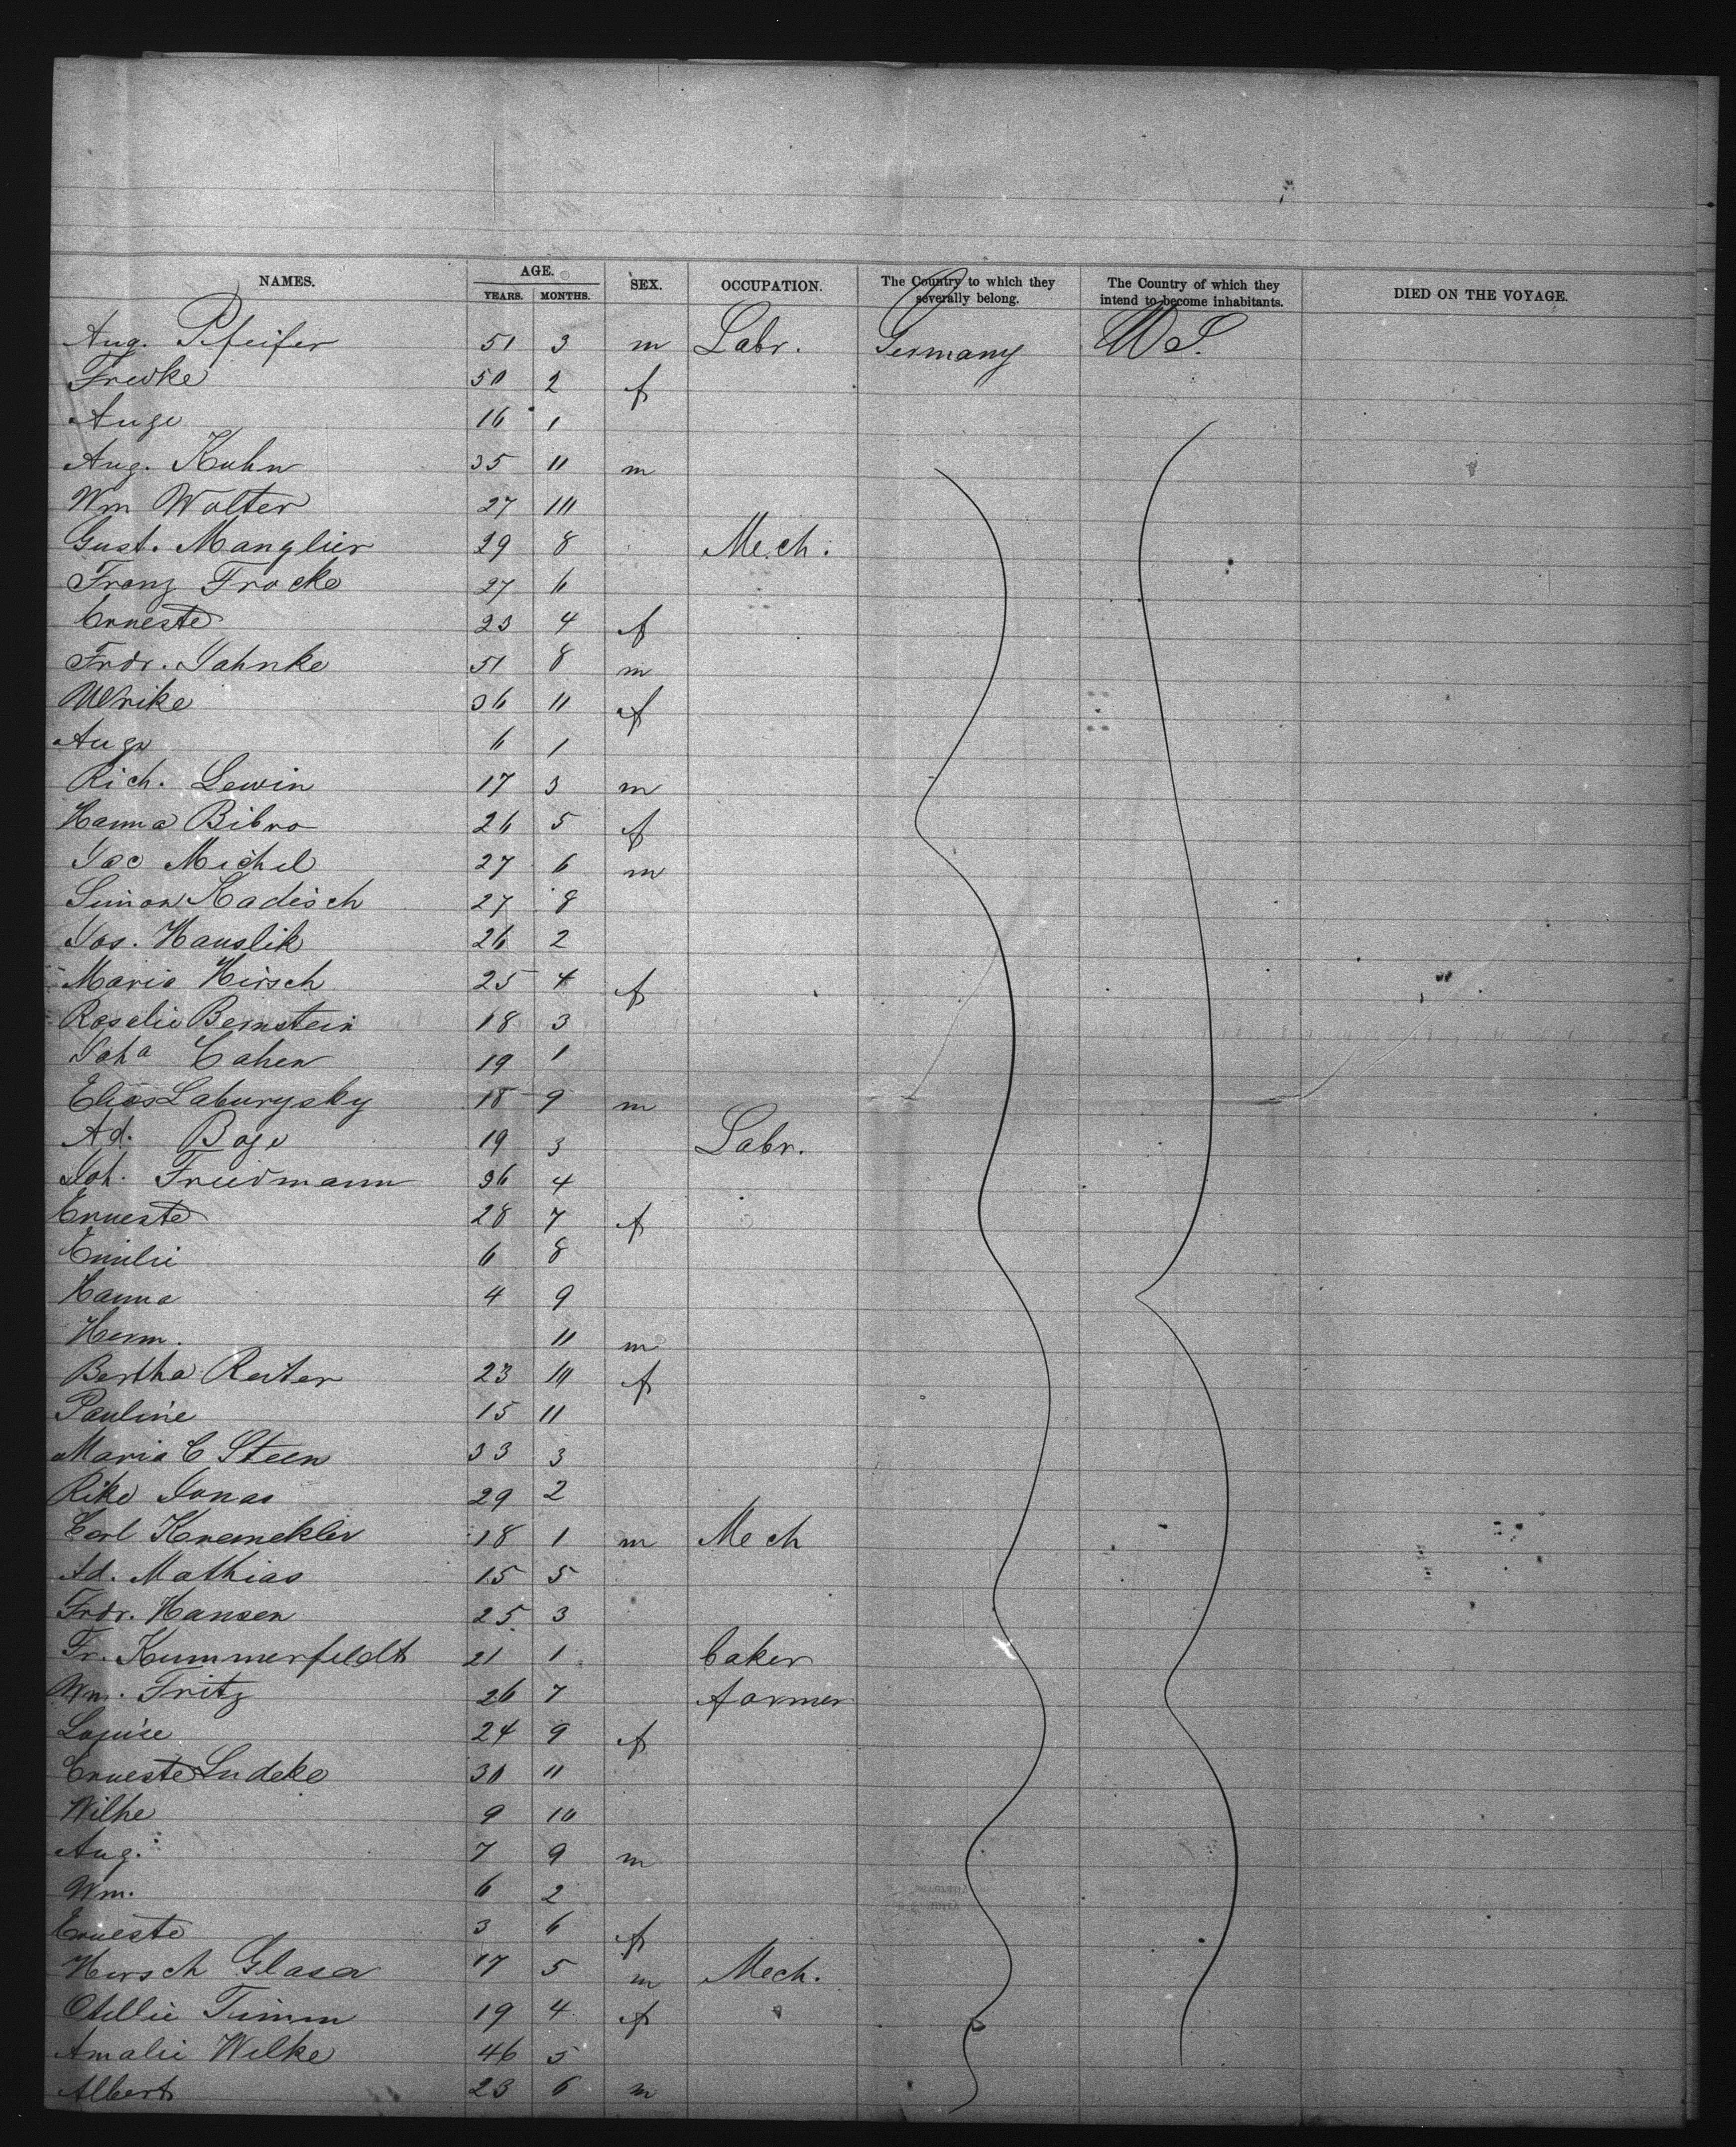 NAMES. AGE. YEARS. MONTHS. SEX. OCCUPATION. The Country to which they severally belong. The Country of which they intend to become inhabitants. DIED ON THE VOYAGE.
Aug. Pfeifer 51 3 m Labr. Germany U S.
Fredke 50 2 f
Auge 16 1
Aug. Kuhn 35 11 m
Wm Wolter 27 10
Gust. Manglier 29 8 Mech.
Franz Frocke 27 6
Erneste 23 4 f
Frdr. Jahnke 51 8 m
Ulrike 36 11 f
Auge 6 1
Rich. Lewin 17 3 m
Hanna Bibro 26 5 f
Jac Michel 27 6 m
Simon Kadisch 27 8
Jos. Hauslik 26 2
Maria Hirsch 25 4 f
Rosalie Bernstein 18 3
Joha Cahen 19 1
Elias 18 9 m
Ad. Boge 19 3 Labr.
Joh. Friedmann 36 4
Erneste 28 7 f
Emilie 6 8
Hanna 4 9
Herm. 11 m
Bertha Reiter 23 10 f
Pauline 15 11
Maria C Steen 33 3
Rike Jonas 29 2
Carl 18 1 m Mech
Ad. Mathias 15 5
Frdr. Hansen 25 3
Fr. Kummerfeldt 21 1 baker
Wm. Fritz 26 7 farmer
Louise 24 9 f
Erneste Ludeke 30 11
Wilhe 9 10
Aug. 7 9 m
Wm. 6 2
Erneste 3 6 f
Hirsch Glaser 17 5 m Mech.
Otillie Timm 19 4 f
Amalie Wilke 46 5
Albert 23 6 m